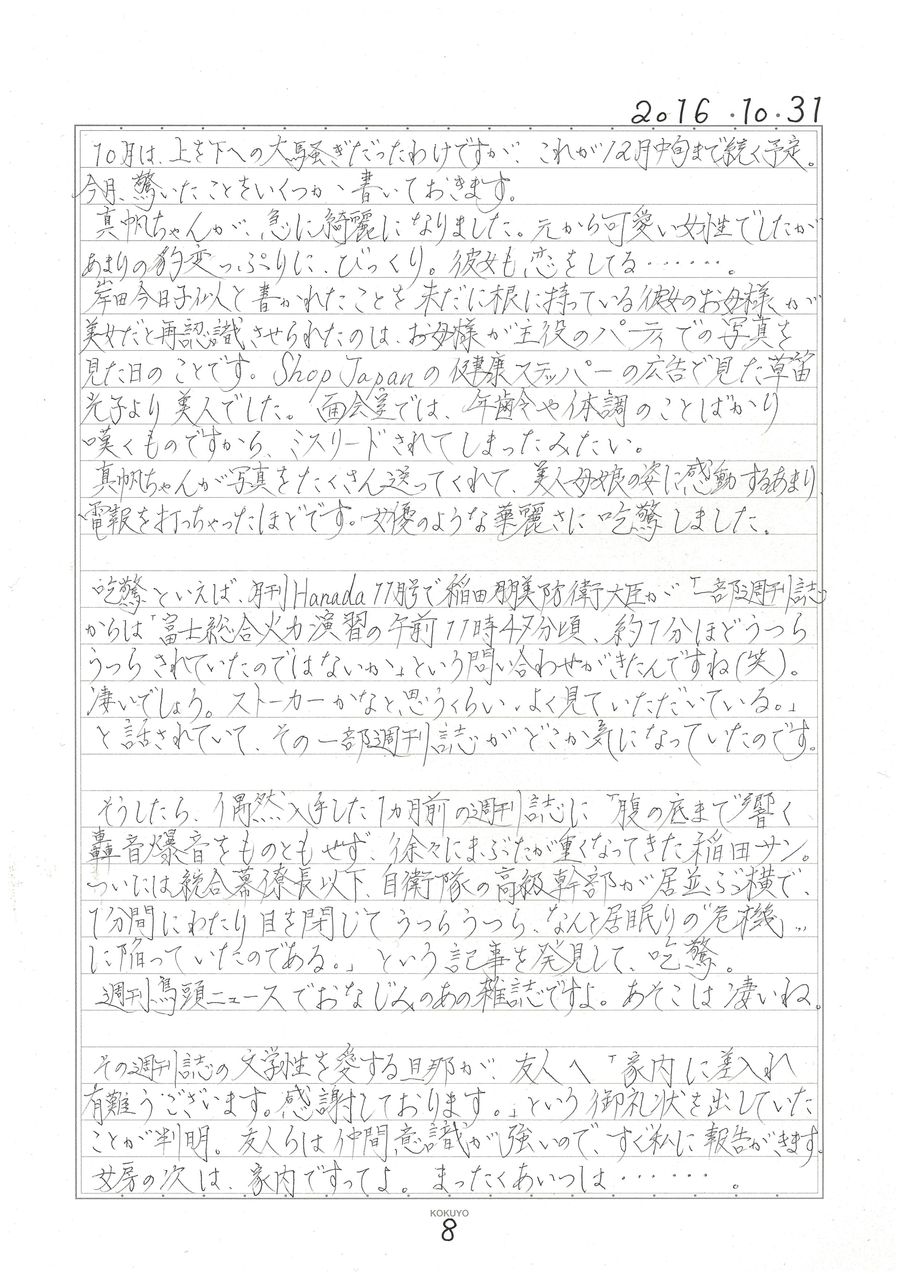 2016.10.31
10月は、上を下への大騒ぎだったわけですが、これが12月中旬まで続く予定。
今月、驚いたことをいくつか書いておきます。
真帆ちゃんが、急に綺麗になりました。元から可愛い女性でしたが
あまりの豹変っぷりに、びっくり。彼女も恋をしてる……。
岸田今日子似人と書かれたことを未だに根に持っている彼女のお母様が
美女だと再認識させられたのは、お母様が主役のパーティでの写真を
見た日のことです。Shop Japanの健康ステッパーの広告で見た草笛
光子より美人でした。面会室では、年齢や体調のことばかり
嘆くものですから、ミスリードされてしまったみたい。
真帆ちゃんが写真をたくさん送ってくれて、美人母娘の姿に感動するあまり、
電報を打っちゃったほどです。女優のような華麗さに吃驚しました。
吃驚といえば、月刊Hanada11月号で稲田朋美防衛大臣が「一部週刊誌
からは「富士総合火力演習の午前11時47分頃、約1分ほどうつら
うつらされていたのではないか」という問い合わせがきたんですね(笑)。
凄いでしょう。ストーカーかなと思うくらい、よく見ていただいている。」
と話されていて、その一部週刊誌がどこか気になっていたのです。
そうしたら、偶然入手した1ヵ月前の週刊誌に「腹の底まで響く
轟音爆音をものともせず、徐々にまぶたが重くなってきた稲田サン。
ついには統合幕僚長以下、自衛隊の高級幹部が居並ぶ横で、
1分間にわたり目を閉じてうつらうつら、なんと居眠りの"危機〟
に陥っていたのである。」という記事を発見して、吃驚。
週刊鳥頭ニュースでおなじみのあの雑誌ですよ。あそこは凄いね。
その週刊誌の文学性を愛する旦那が、友人へ「家内に差入れ
有難うございます。感謝しております。」という御礼状を出していた
ことが判明。友人らは仲間意識が強いので、すぐ私に報告がきます。
女房の次は、家内ですってよ。まったくあいつは……。
KOKUYO
8